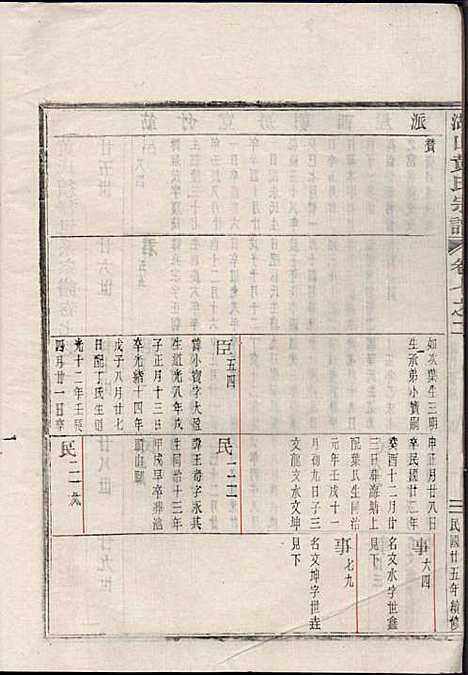 湖山黄氏宗譜
卷七之二
民國廿五年續修
派
贊
如次葉生三明
生承弟小寶嗣
臣
五四
諱小寶字大盈
生道光八年戊
子正月十三日
卒光緒十四年
戊子八月廿七
日配丁氏生道
光十二年壬辰
四月廿一日卒
申正月廿八日
卒民國廿二年
癸酉十二月廿
三日葬海塘上
配葉氏生同治
元年壬戌十一
月初九日子三
文龍文水文坤
民
一二二
諱玉壽字永其
生同治十三年
甲戌早卒葬池
頭山腳
民
二二六
事
六四
名文水字世鑫
見下
事
七九
名文坤字世垚
見下